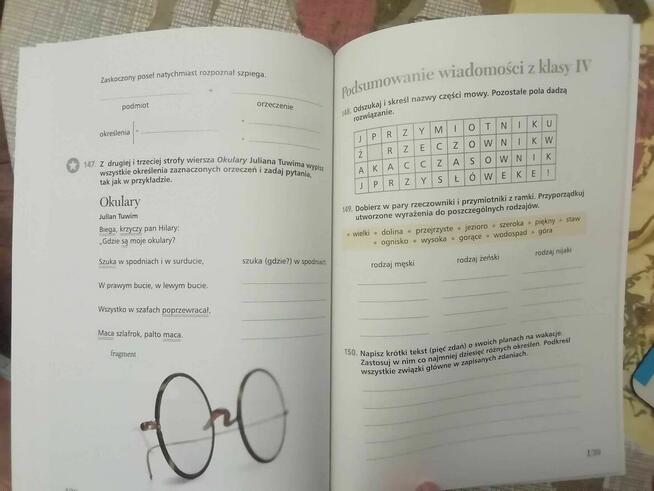 Zaskoczony poseł natychmiast rozpoznał szpiega.
+
podmiot
orzeczenie
określenia
147. Z drugiej i trzeciej strofy wiersza Okulary Juliana Tuwima wypisz
wszystkie określenia zaznaczonych orzeczeń i zadaj pytania,
tak jak w przykładzie.
Okulary
Julian Tuwim
Biega, krzyczy pan Hilary:
„Gdzie są moje okulary?
Szuka w spodniach i w surducie,
szuka (gdzie?) w spodniach
W prawym bucie, w lewym bucie.
Wszystko w szafach poprzewracał,
Maca szlafrok, palto maca.
fragment
Podsumowanie wiadomości z klasy IV
148. Odszukaj i skreśl nazwy części mowy. Pozostałe pola dadzą
rozwiązanie.
J P R Z Y M I O T N I K U
Ż R Z E C Z O W N I K W
A K A C C Z A S O W N I K
J P R Z Y S Ł Ó W E K E !
149. Dobierz w pary rzeczowniki i przymiotniki z ramki. Przyporządkuj
utworzone wyrażenia do poszczególnych rodzajów.
• wielki • dolina • przejrzyste • jezioro • szeroka • piękny • staw
• ognisko • wysoka • gorące • wodospad • góra
rodzaj męski
rodzaj żeński
rodzaj nijaki
150. Napisz krótki tekst (pięć zdań) o swoich planach na wakacje.
Zastosuj w nim co najmniej dziesięć różnych określeń. Podkreśl
wszystkie związki główne w zapisanych zdaniach.